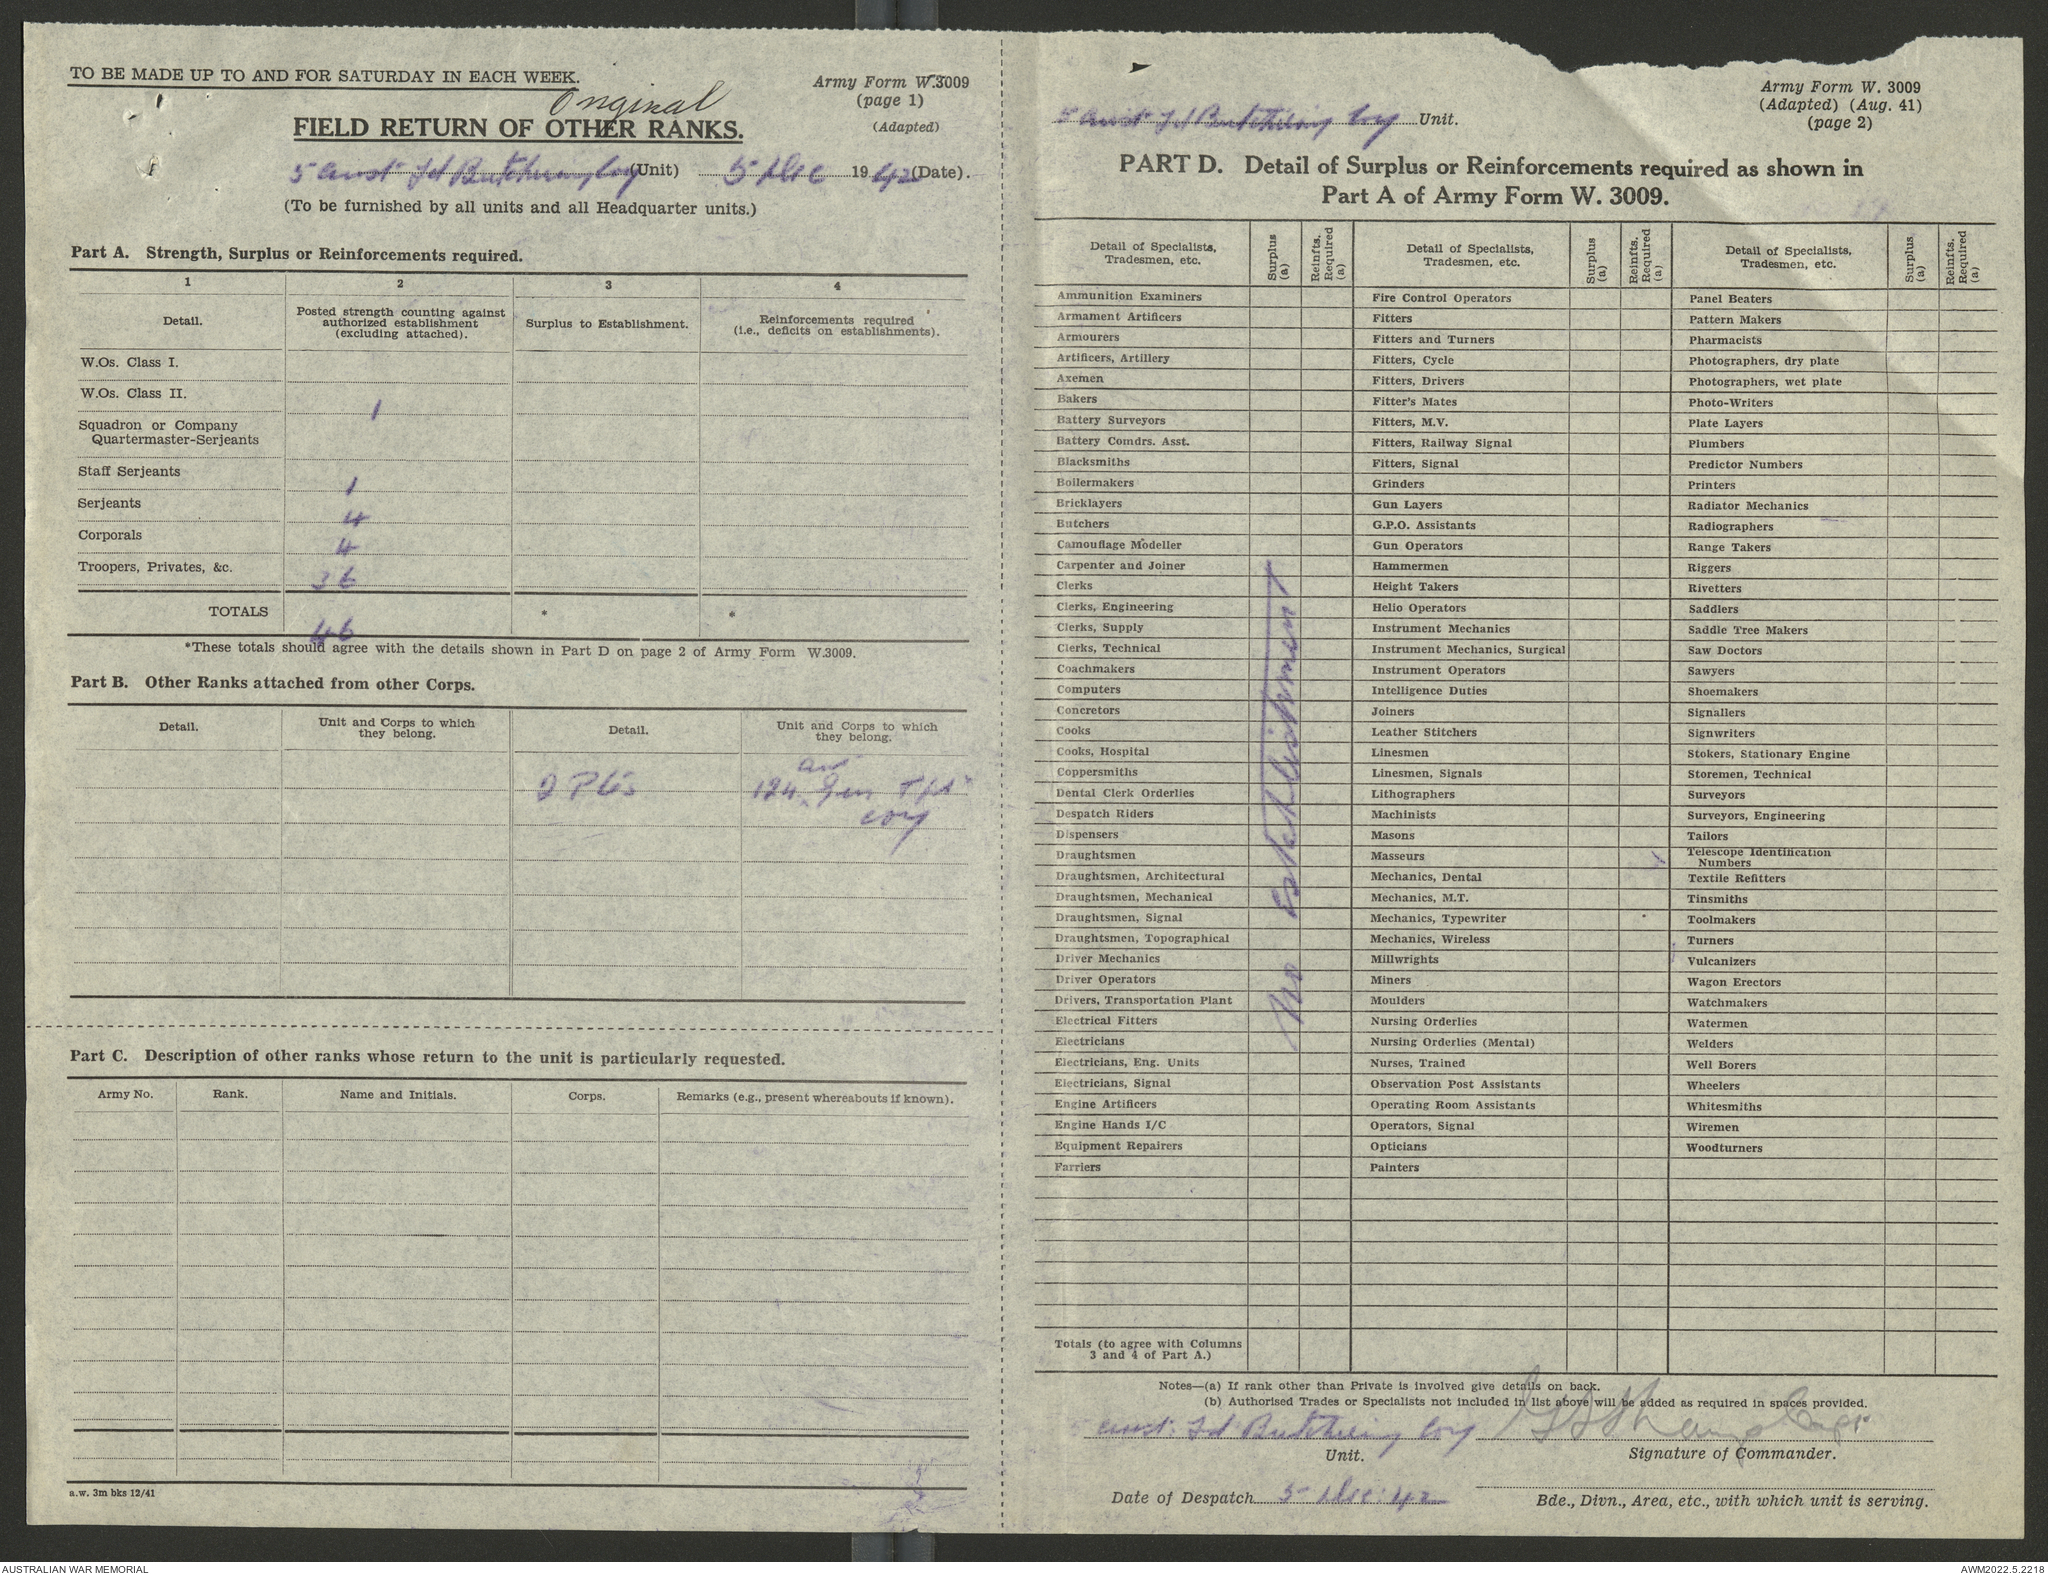 TO BE MADE UP TO AND FOR SATURDAY IN EACH WEEK.
Army Form W.3009
(page 1)
(Adapted)
Original
FIELD RETURN OF OTHER RANKS.
5 Aust Fd Butchering Coy (Unit) 5 Dec 1942 (Date).
(To be furnished by all units and all Headquarter units.)
Part A. Strength, Surplus or Reinforcements required.
1 2 3 4
Detail. Posted strength counting against authorized establishment (excluding attached). Surplus to Establishment. Reinforcements required (i.e., deficits on establishments).
W.Os. Class I.
W.Os. Class II. 1
Squadron or Company
Quartermaster-Serjeants
Staff Serjeants 1
Serjeants 4
Corporals 4
Troopers, Privates, &c. 36
TOTALS 46 * *
*These totals should agree with the details shown in Part D on page 2 of Army Form W.3009.
Part B. Other Ranks attached from other Corps.
Detail. Unit and Corps to which they belong. Detail. Unit and Corps to which they belong.
2 Ptes 124 Gen Tpt
Coy
Part C. Description of other ranks whose return to the unit is particularly requested.
Army No. Rank. Name and Initials. Corps. Remarks (e.g., present whereabouts if known).
a.w. 3m bks 12/41
Army Form W. 3009
(Adapted) (Aug. 41)
(page 2)
5 Aust Fd Butchering Coy Unit.
PART D. Detail of Surplus or Reinforcements required as shown in
Part A of Army Form W. 3009.
Detail of Specialists, Tradesmen, etc. Surplus (a) Reinfts. Required (a) Detail of Specialists, Tradesmen, etc. Surplus (a) Reinfts. Required (a) Detail of Specialists, Tradesmen, etc. Surplus (a) Reinfts. Required (a)
Ammunition Examiners Fire Control Operators Panel Beaters
Armament Artificers Fitters Pattern Makers
Armourers Fitters and Turners Pharmacists
Artificers, Artillery Fitters, Cycle Photographers, dry plate
Axemen Fitters, Drivers Photographers, wet plate
Bakers Fitter's Mates Photo-Writers
Battery Surveyors Fitters, M.V. Plate Layers
Battery Comdrs. Asst. Fitters, Railway Signal Plumbers
Blacksmiths Fitters, Signal Predictor Numbers
Boilermakers Grinders Printers
Bricklayers Gun Layers Radiator Mechanics
Butchers G.P.O. Assistants Radiographers
Camouflage Modeller Gun Operators Range Takers
Carpenter and Joiner Hammermen Riggers
Clerks Height Takers Rivetters
Clerks, Engineering Helio Operators Saddlers
Clerks, Supply Instrument Mechanics Saddle Tree Makers
Clerks, Technical Instrument Mechanics, Surgical Saw Doctors
Coachmakers Instrument Operators Sawyers
Computers Intelligence Duties Shoemakers
Concretors Joiners Signallers
Cooks Leather Stitchers Signwriters
Cooks, Hospital Linesmen Stokers, Stationary Engine
Coppersmiths Linesmen, Signals Storemen, Technical
Dental Clerk Orderlies Lithographers Surveyors
Despatch Riders Machinists Surveyors, Engineering
Dispensers Masons Tailors
Draughtsmen Masseurs Telescope Identification Numbers
Draughtsmen, Architectural Mechanics, Dental Textile Refitters
Draughtsmen, Mechanical Mechanics, M.T. Tinsmiths
Draughtsmen, Signal Mechanics, Typewriter Toolmakers
Draughtsmen, Topographical Mechanics, Wireless Turners
Driver Mechanics Millwrights Vulcanizers
Driver Operators Miners Wagon Erectors
Drivers, Transportation Plant Moulders Watchmakers
Electrical Fitters Nursing Orderlies Watermen
Electricians Nursing Orderlies (Mental) Welders
Electricians, Eng. Units Nurses, Trained Well Borers
Electricians, Signal Observation Post Assistants Wheelers
Engine Artificers Operating Room Assistants Whitesmiths
Engine Hands I/C Operators, Signal Wiremen
Equipment Repairers Opticians Woodturners
Farriers Painters
No Establishment
Totals (to agree with Columns
3 and 4 of Part A.)
Notes—(a) If rank other than Private is involved give details on back.
(b) Authorised Trades or Specialists not included in list above will be added as required in spaces provided.
5 Aust. Fd Butchering Coy Capt
Unit. Signature of Commander.
Date of Despatch 5 Dec. 42
Bde., Divn., Area, etc., with which unit is serving.
AUSTRALIAN WAR MEMORIAL
AWM2022.5.2218